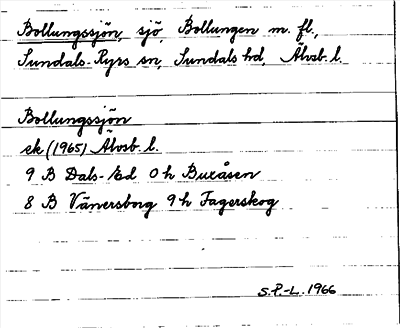 Bollungssjön, sjö, Bollungen m. fl.,
Sundals-Ryrs sn, Sundals hd, Älvsb. l.
Bollungssjön
ek (1965) Älvsb l.
9 B Dals-Ed 0 h Buråsen
8 B Vänersborg 9 h Fagerskog
S.P.-L. 1966